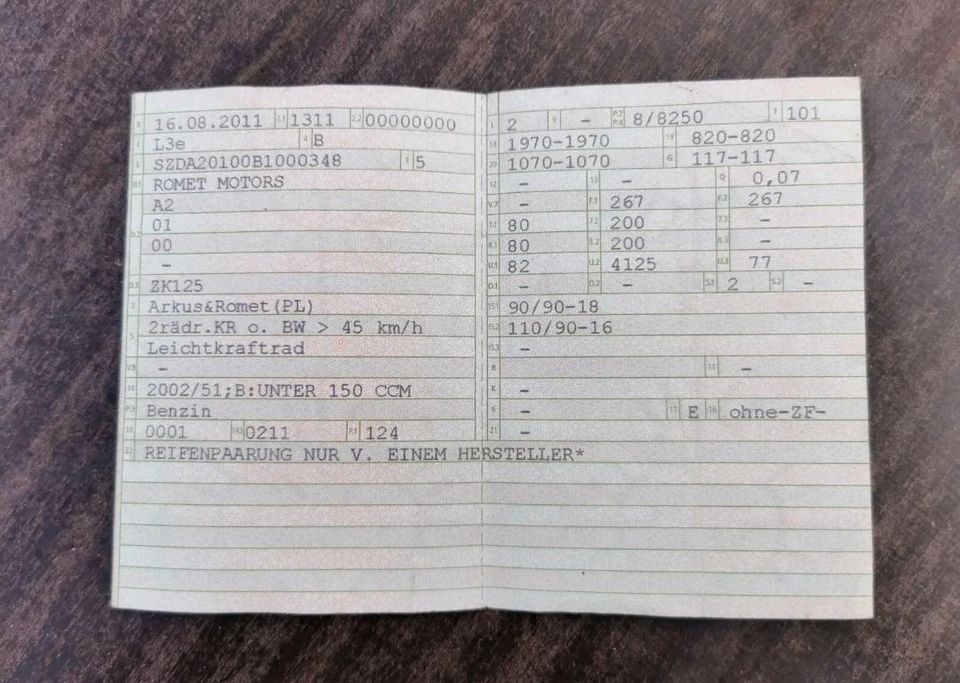 B 16.08.2011 2.1 1311 2.2 00000000
J L3e 4 B
E SZDA20100B1000348 3 5
D.1 ROMET MOTORS
A2
D.2 01
00
-
D.3 ZK125
2 Arkus&Romet(PL)
5 2rädr.KR o. BW > 45 km/h
Leichtkraftrad
V.9 -
14 2002/51;B:UNTER 150 CCM
P.3 Benzin
10 0001 14.1 0211 P.1 124
22 REIFENPAARUNG NUR V. EINEM HERSTELLER*
L 2 9 - P.2 P.4 8/8250 T 101
18 1970-1970 19 820-820
20 1070-1070 G 117-117
12 - 13 - Q 0,07
V.7 - F.1 267 F.2 267
7.1 80 7.2 200 7.3 -
8.1 80 8.2 200 8.3 -
U.1 82 U.2 4125 U.3 77
O.1 - O.2 - S.1 2 S.2 -
15.1 90/90-18
15.2 110/90-16
15.3 -
R 11 -
K -
6 - 17 E 16 ohne-ZF-
21 -